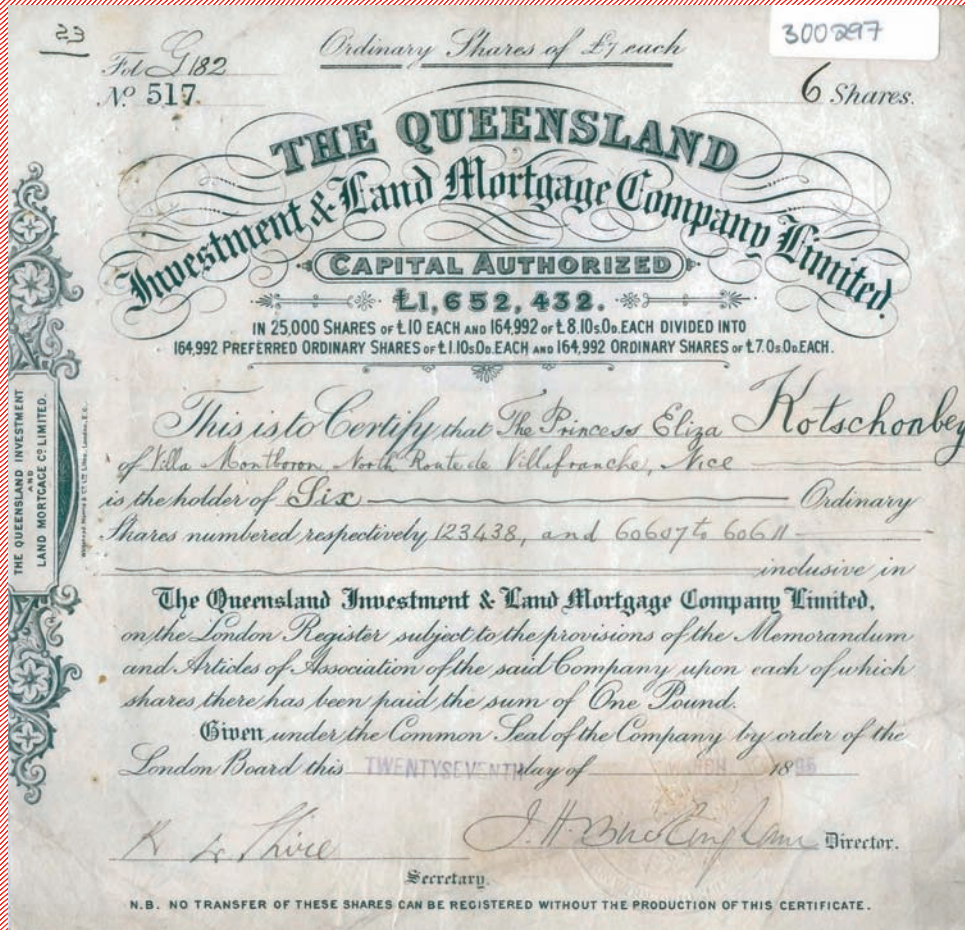 23
300297
Ordinary Shares of £7 each
Fol. G 182
No. 517.
6 Shares.
THE QUEENSLAND
Investment & Land Mortgage Company Limited.
CAPITAL AUTHORIZED
£1,652,432.
IN 25,000 SHARES OF £10 EACH AND 164,992 OF £8.10s.0D. EACH DIVIDED INTO
164,992 PREFERRED ORDINARY SHARES OF £1.10s.0D. EACH AND 164,992 ORDINARY SHARES OF £7.0s.0D. EACH.
THE QUEENSLAND INVESTMENT
AND
LAND MORTGAGE CO. LIMITED.
This is to Certify that The Princess Eliza Kotschonbey
of Villa Montboron, North Route de Villefranche, Nice
is the holder of Six Ordinary
Shares numbered respectively 123438, and 60607 to 60611
inclusive in
The Queensland Investment & Land Mortgage Company Limited,
on the London Register subject to the provisions of the Memorandum
and Articles of Association of the said Company upon each of which
shares there has been paid the sum of One Pound.
Given under the Common Seal of the Company by order of the
London Board this TWENTYSEVENTH day of 18
J. H. Buckingham Director.
Secretary.
N.B. NO TRANSFER OF THESE SHARES CAN BE REGISTERED WITHOUT THE PRODUCTION OF THIS CERTIFICATE.